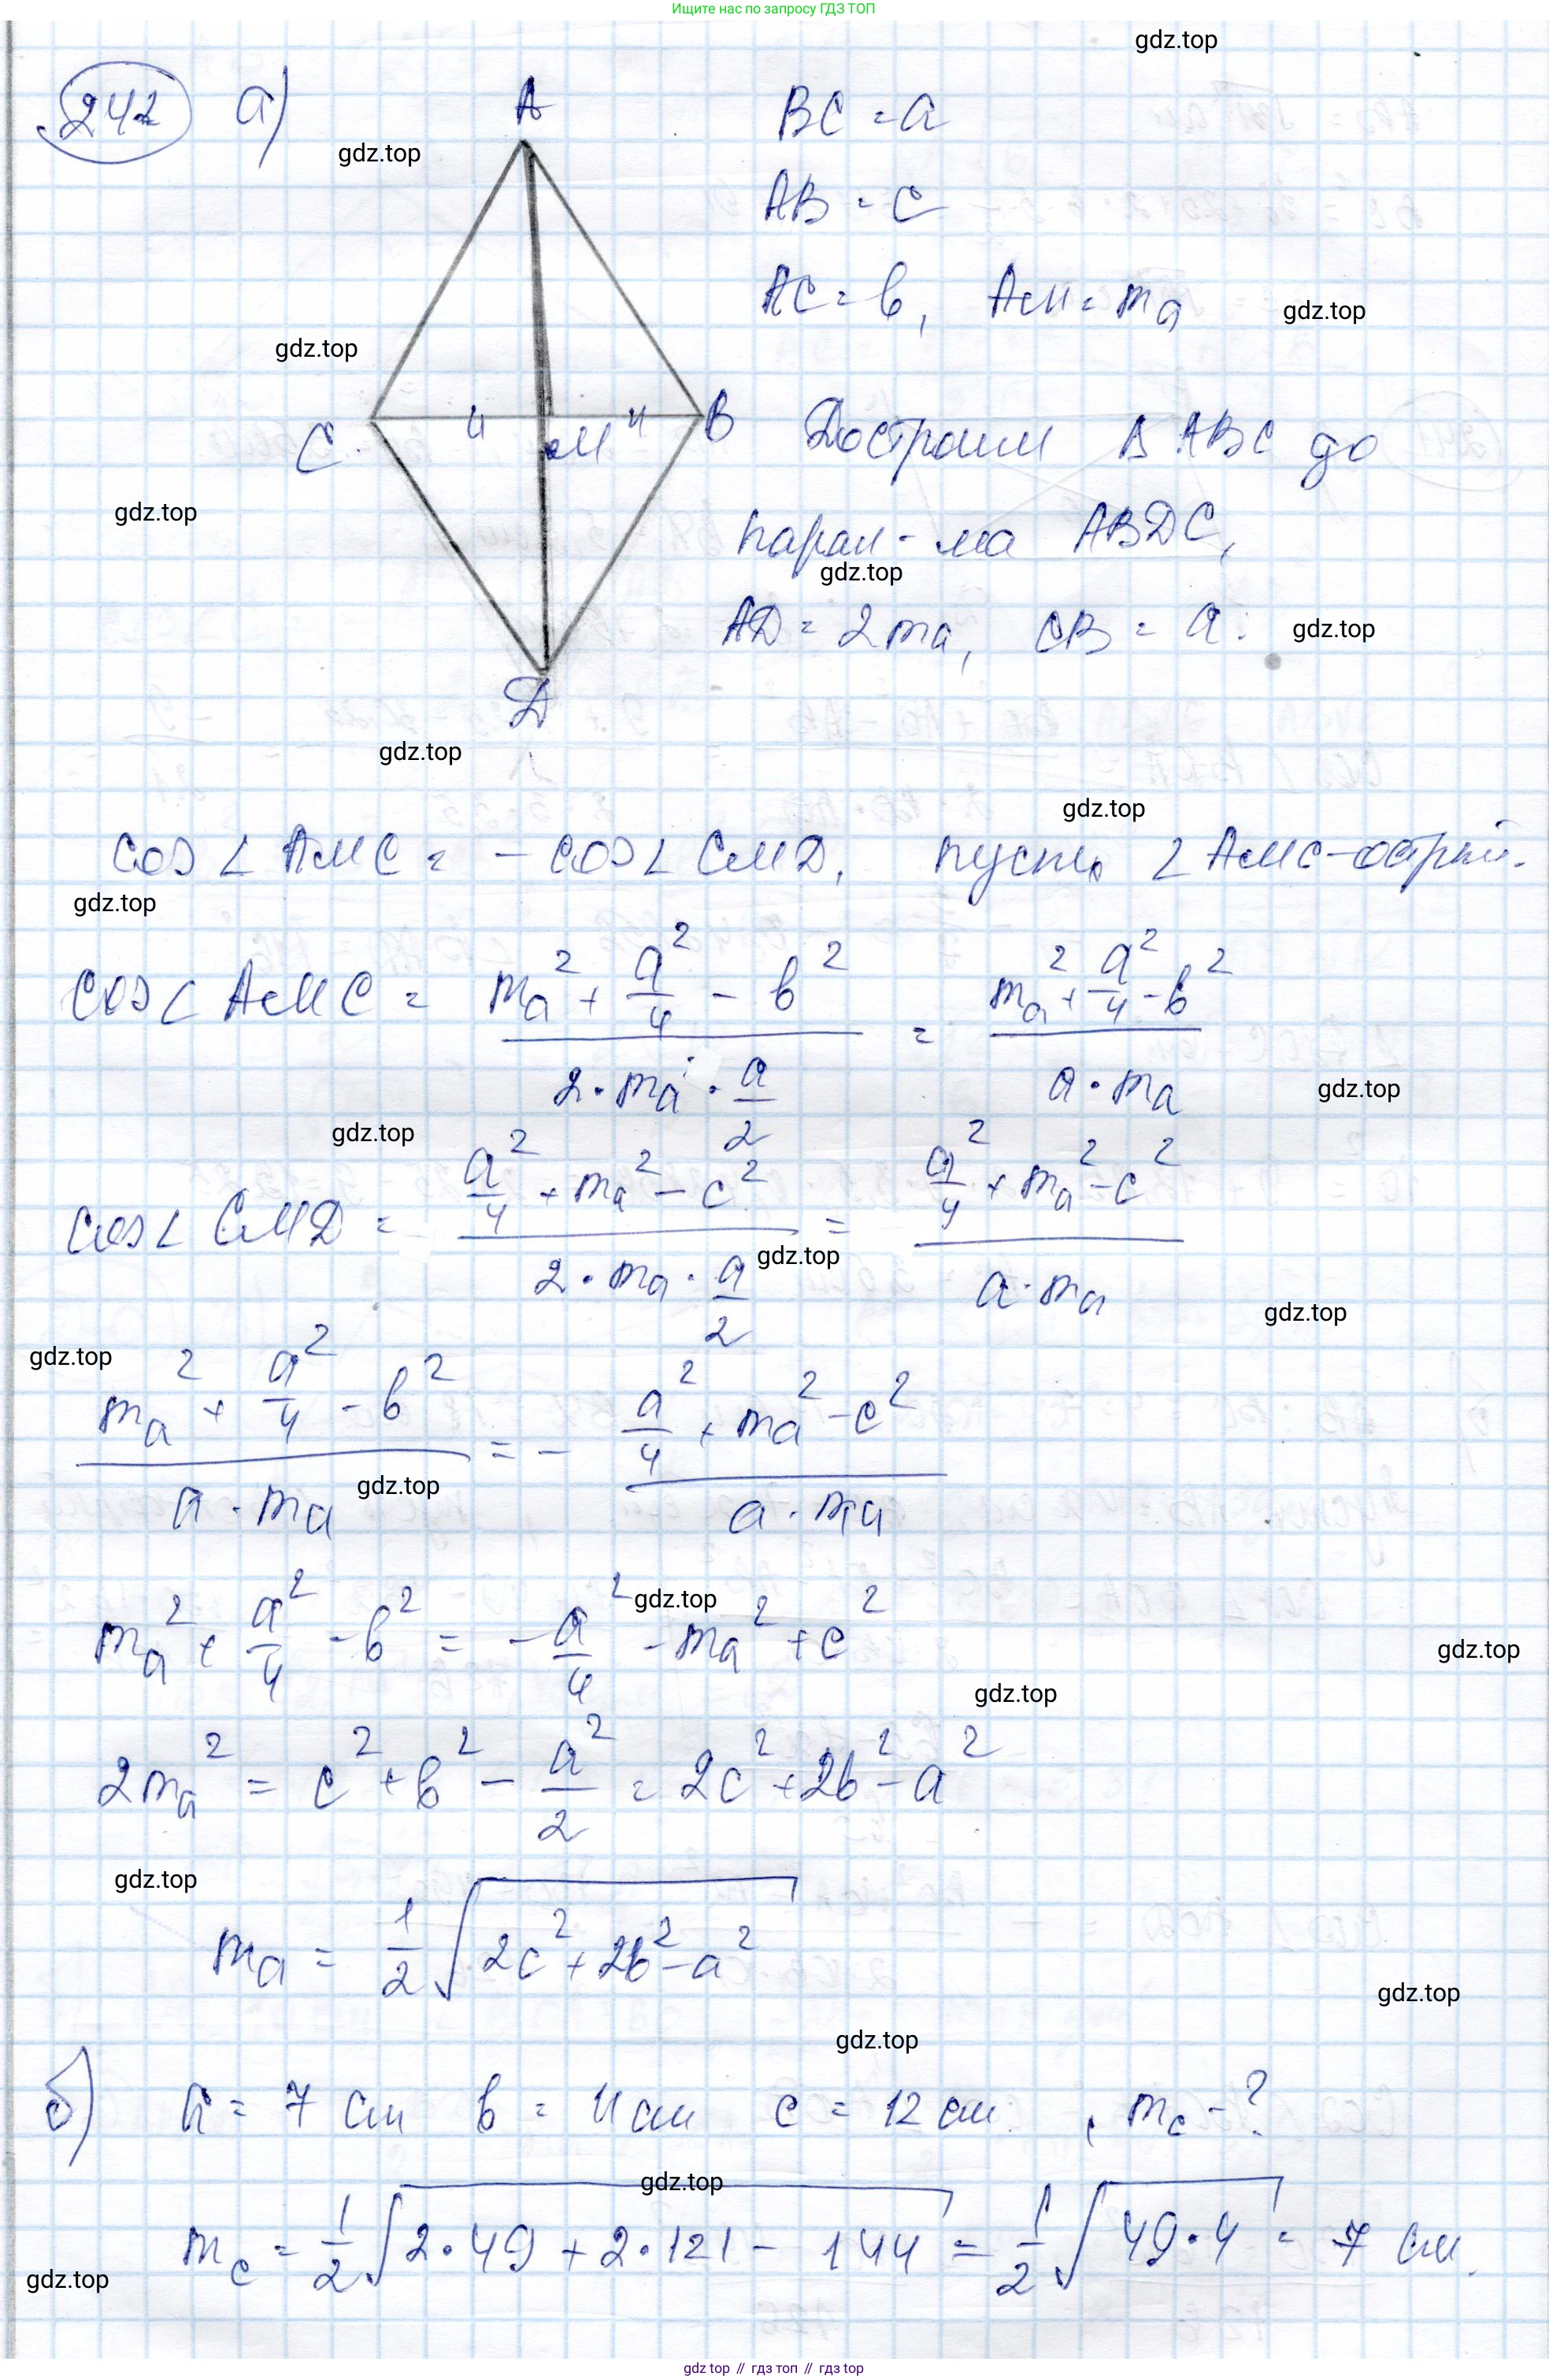 Ищите нас по запросу ГДЗ ТОП
gdz.top
242 а)
A
BC = a
gdz.top
AB = c
AC = b, AM = mₐ
gdz.top
gdz.top
C
M
B
Достроим Δ ABC до
gdz.top
парал-ма ABDC,
gdz.top
AD = 2mₐ, CB = a.
gdz.top
D
gdz.top
gdz.top
cos∠AMC = − cos∠CMD, пусть ∠AMC − острый.
gdz.top
cos∠AMC = (mₐ² + a²/4 − b²)/(2·mₐ·a/2) = (mₐ² + a²/4 − b²)/(a·mₐ)
gdz.top
gdz.top
cos∠CMD = (a²/4 + mₐ² − c²)/(2·mₐ·a/2) = (a²/4 + mₐ² − c²)/(a·mₐ)
gdz.top
gdz.top
gdz.top
(mₐ² + a²/4 − b²)/(a·mₐ) = − (a²/4 + mₐ² − c²)/(a·mₐ)
gdz.top
gdz.top
mₐ² + a²/4 − b² = −a²/4 − mₐ² + c²
gdz.top
gdz.top
2mₐ² = c² + b² − a²/2 = 2c² + 2b² − a²
gdz.top
mₐ = 1/2 √(2c² + 2b² − a²)
gdz.top
gdz.top
б) a = 7 см b = 11 см c = 12 см, m_c − ?
gdz.top
m_c = 1/2 √(2·49 + 2·121 − 144) = 1/2 √(49·4) = 7 см.
gdz.top
gdz top // гдз топ // гдз top